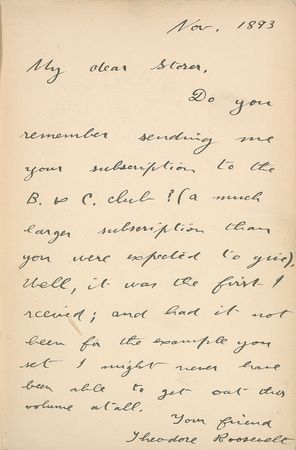 Nov. 1893
My dear Storer,
Do you
remember sending me
your subscription to the
B. & C. club? (a much
larger subscription than
you were expected to give).
Well, it was the first I
received; and had it not
been for the example you
set I might never have
been able to get out this
volume at all.
Your friend
Theodore Roosevelt